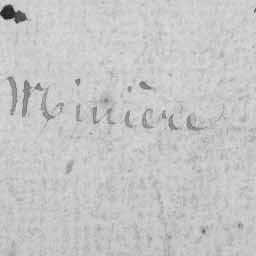 Minière